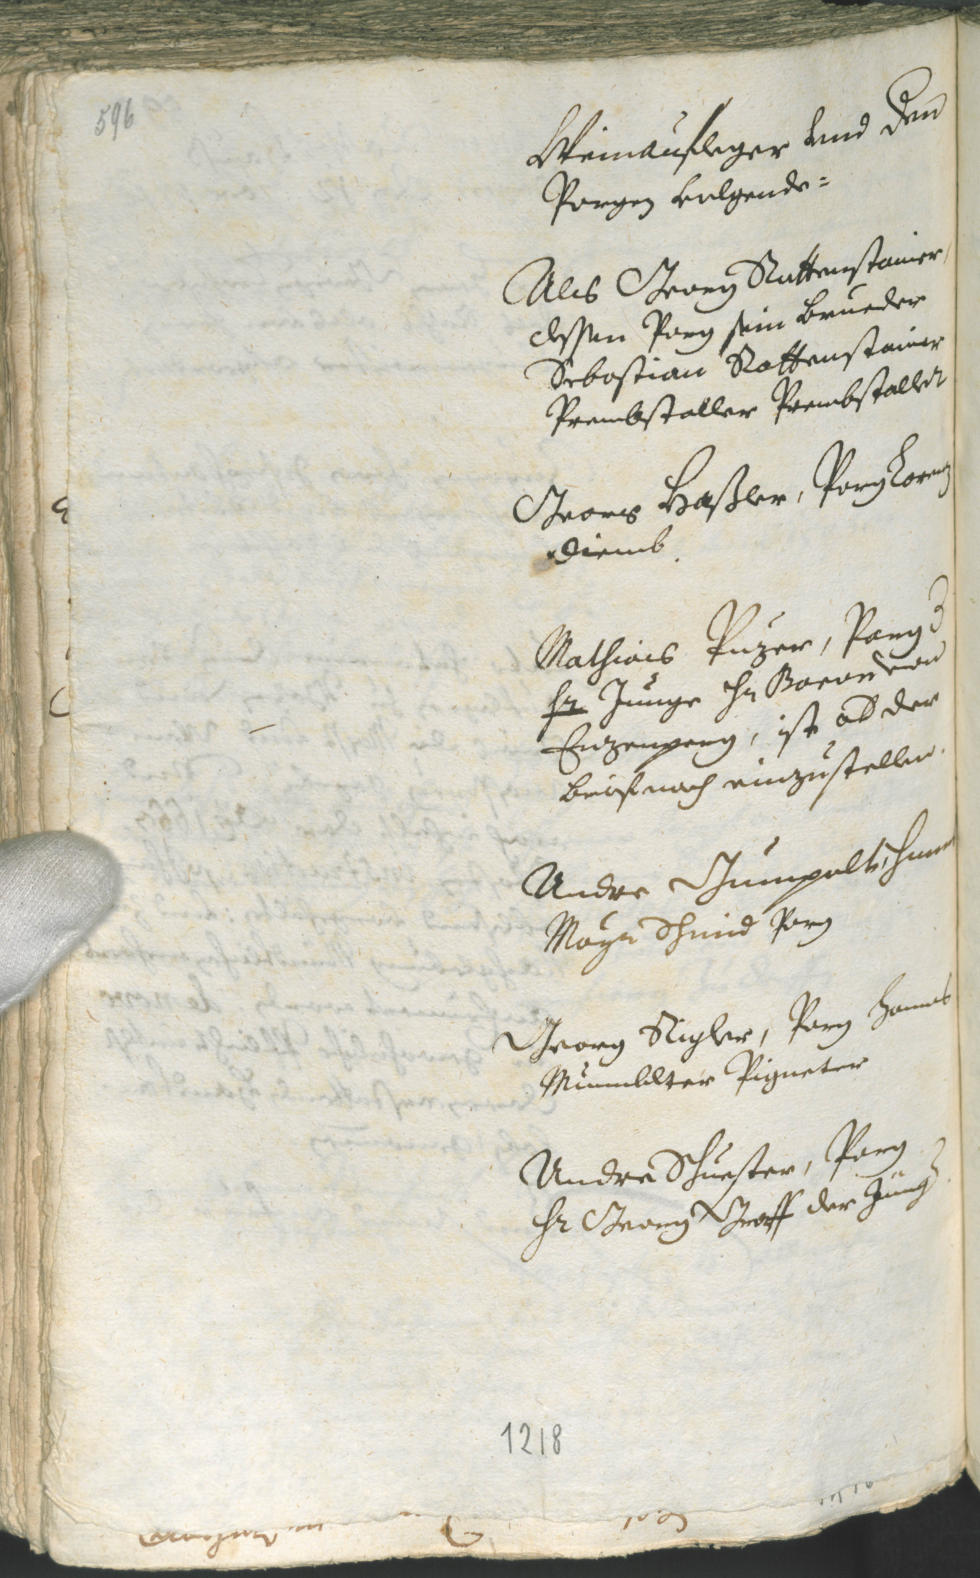 596
Weinausleger vnd dern
Porgen volgende=
Als Georg Rattenstainer,
dessen Porg sein Brueder
Sebastian Rattenstainer
Prembstaller Prembstaller
Georg Haßler, Porg Lorenz
Diemb.
Mathias Puzer, Porg
hr Junge hr Baron von
Enzenperg, ist ab der
beisl noch einzustellen.
Andre
Mayr Schmid Porg
Georg Rigler, Porg Hanns
Pigneter
Andre Schuester, Porg
hr Georg Graff der Jung
1218